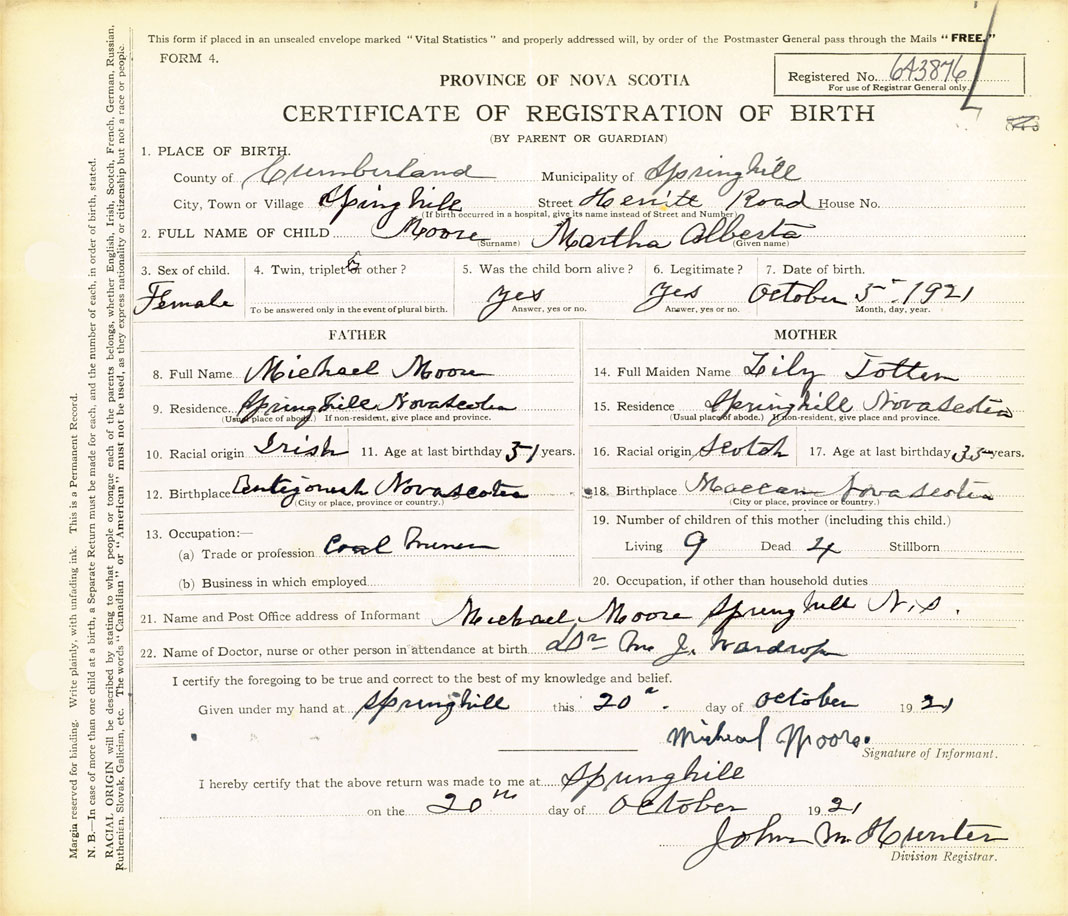 This form if placed in an unsealed envelope marked "Vital Statistics" and properly addressed will, by order of the Postmaster General pass through the Mails "FREE."
FORM 4.
Registered No. 643876
For use of Registrar General only.
PROVINCE OF NOVA SCOTIA
CERTIFICATE OF REGISTRATION OF BIRTH
(BY PARENT OR GUARDIAN)
1. PLACE OF BIRTH.
County of Cumberland Municipality of Springhill
City, Town or Village Springhill Street Herritt Road House No.
(If birth occurred in a hospital, give its name instead of Street and Number)
2. FULL NAME OF CHILD Moore Martha Alberta
(Surname) (Given name)
3. Sex of child. 4. Twin, triplet or other? 5. Was the child born alive? 6. Legitimate? 7. Date of birth.
Female yes yes October 5th 1921
To be answered only in the event of plural birth. Answer, yes or no. Answer, yes or no. Month, day, year.
FATHER
8. Full Name Michael Moore
9. Residence Springhill Novascotia
(Usual place of abode.) If non-resident, give place and province.
10. Racial origin Irish 11. Age at last birthday 51 years.
12. Birthplace Entigonesh Novascotia
(City or place, province or country.)
13. Occupation:—
(a) Trade or profession Coal Miner
(b) Business in which employed
MOTHER
14. Full Maiden Name Lily Totten
15. Residence Springhill Novascotia
(Usual place of abode.) If non-resident, give place and province.
16. Racial origin Scotch 17. Age at last birthday 35 years.
18. Birthplace Maccan Novascotia
(City or place, province or country.)
19. Number of children of this mother (including this child.)
Living 9 Dead 4 Stillborn
20. Occupation, if other than household duties
21. Name and Post Office address of Informant Michael Moore Springhill N.S.
22. Name of Doctor, nurse or other person in attendance at birth Dr M. J. Wardrope
I certify the foregoing to be true and correct to the best of my knowledge and belief.
Given under my hand at Springhill this 20th day of October 1921
Micheal Moore.
Signature of Informant.
I hereby certify that the above return was made to me at Springhill
on the 20th day of October 1921
John M Hunter
Division Registrar.
Margin reserved for binding. Write plainly, with unfading ink. This is a Permanent Record.
N. B.—In case of more than one child at a birth, a Separate Return must be made for each, and the number of each, in order of birth, stated.
RACIAL ORIGIN will be described by stating to what people or tongue each of the parents belongs, whether English, Irish, Scotch, French, German, Russian,
Ruthenian, Slovak, Galician, etc. The words "Canadian" or "American" must not be used, as they express nationality or citizenship but not a race or people.